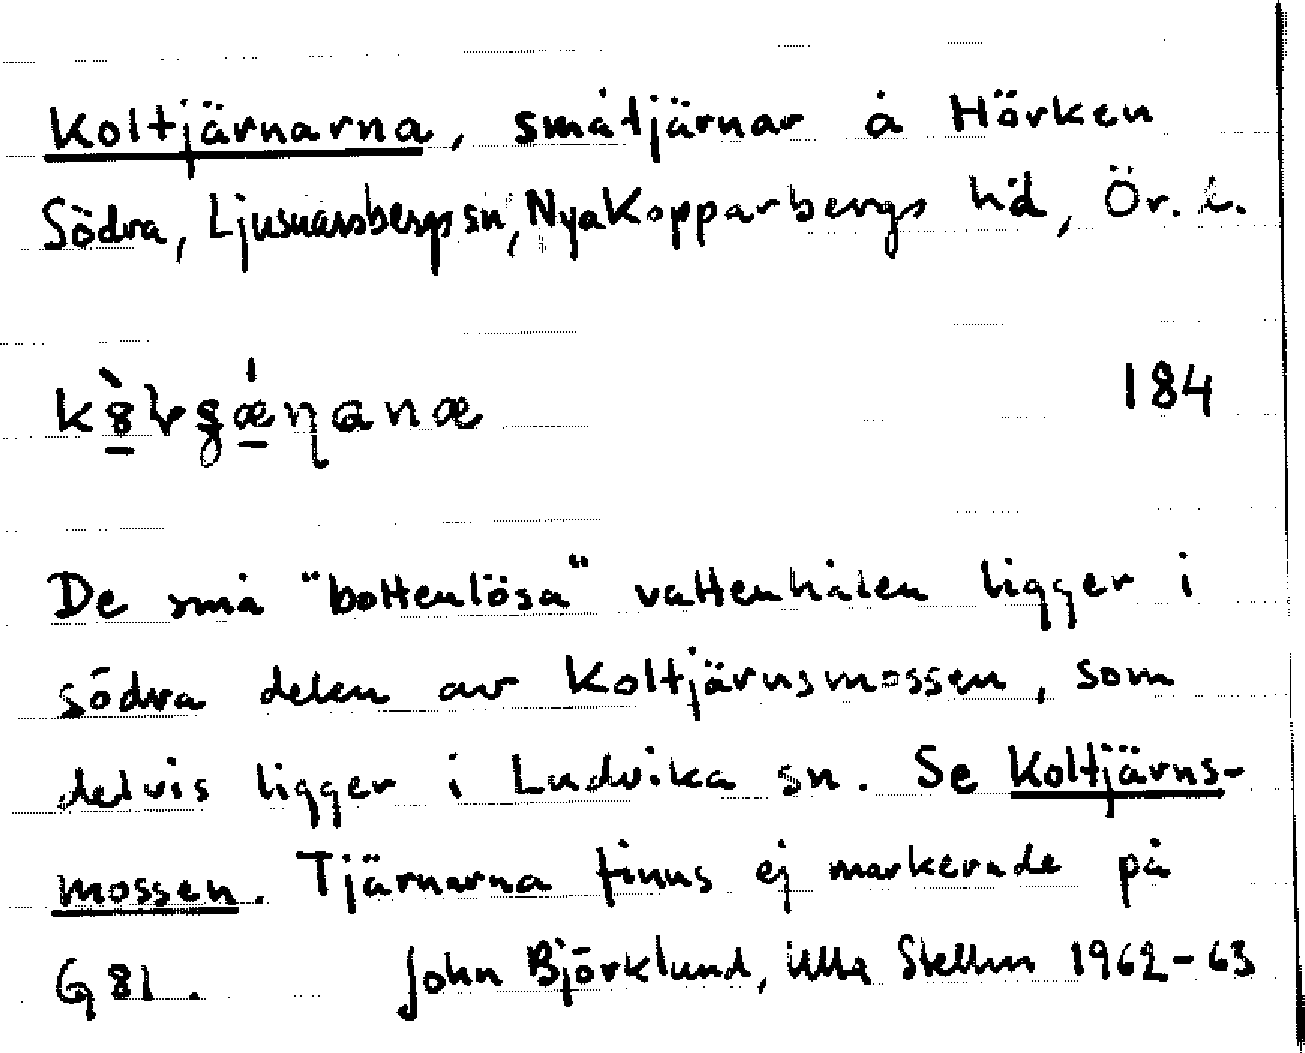 Koltjärnarna, småtjärnar å Hörken
Södra, Ljusnarsbergs sn, Nya Kopparbergs hd, Ör. l.
184
De små "bottenlösa" vattenhålen ligger i
södra delen av Koltjärnsmossen, som
delvis ligger i Ludvika sn. Se Koltjärns-
mossen. Tjärnarna finns ej markerade på
G 81. John Björklund, Ulla Stellan 1962-63